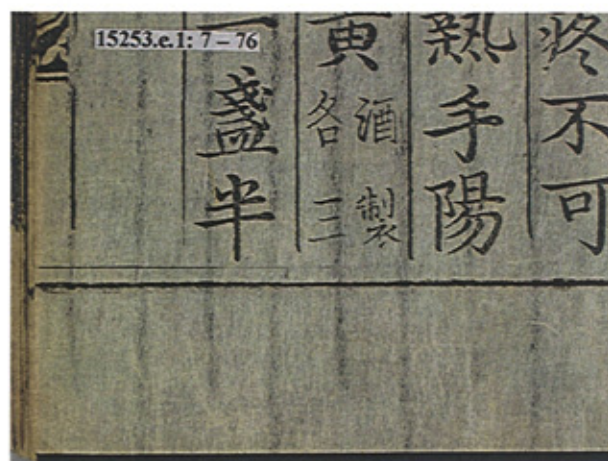 15253.e.1: 7 – 76
疼不可
熱手陽
黄 酒製
各三
一盞半